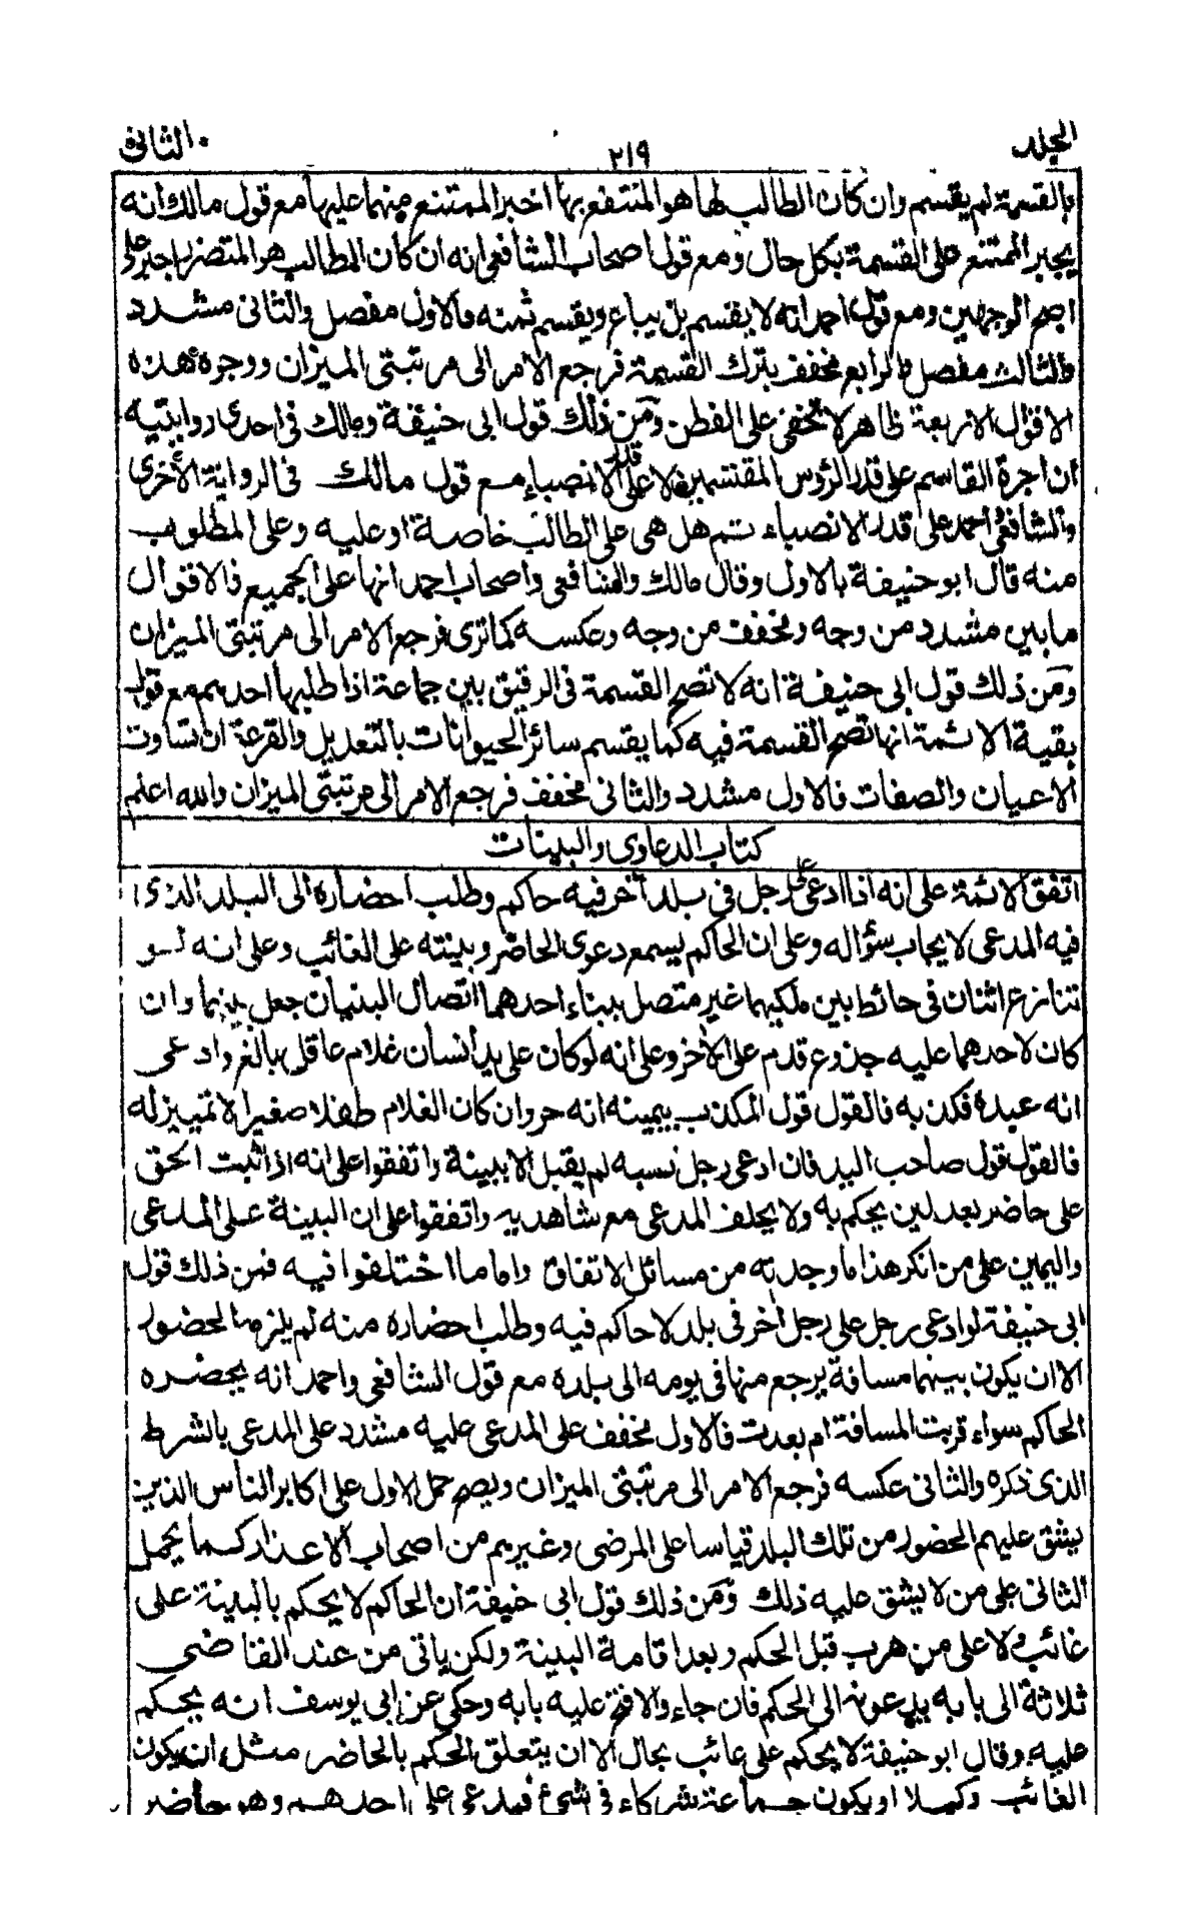 الجلد ٢١٩ الثانى
بالقسمة لم يقسم وان كان الطالب لها هو المنتفع بها اجبر الممتنع منهما عليها مع قول مالك انه
يجبر الممتنع على القسمة بكل حال ومع قول اصحاب الشافعى انه ان كان المطالب هو المتضرر اجبر على
اصح الوجهين ومع قول احمد انه لا يقسم بل يباع ويقسم ثمنه فالاول مفصل والثانى مشدد
والثالث مفصل والرابع مخفف بترك القسمة فرجع الامر الى مرتبتى الميزان ووجوه هذه
الاقوال الاربعة ظاهر لا تخفى على الفطن ومن ذلك قول ابى حنيفة ومالك فى احدى روايتيه
ان اجرة القاسم على قدر الرؤس المقتسمين لا على قدر الانصباء مع قول مالك فى الرواية الاخرى
والشافعى واحمد على قدر الانصباء ثم هل هى على الطالب خاصة او عليه وعلى المطلوب
منه قال ابو حنيفة بالاول وقال مالك والشافعى واصحاب احمد انها على الجميع فالاقوال
ما بين مشدد من وجه ومخفف من وجه وعكسه كما ترى فرجع الامر الى مرتبتى الميزان
ومن ذلك قول ابى حنيفة انه لا تصح القسمة فى الرقيق بين جماعة اذا طلبها احدهم مع قول
بقية الائمة انها تصح القسمة فيه كما يقسم سائر الحيوانات بالتعديل والقرعة ان تساوت
الاعيان والصفات فالاول مشدد والثانى مخفف فرجع الامر الى مرتبتى الميزان والله اعلم
كتاب الدعاوى والبينات
اتفق الائمة على انه اذا ادعى على رجل فى بلد آخر فيه حاكم وطلب احضاره الى البلد الذى
فيه المدعى لا يجاب سؤاله وعلى ان الحاكم يسمع دعوى الحاضر وبينته على الغائب وعلى انه لو
تنازع اثنان فى حائط بين ملكيهما غير متصل ببناء احدهما اتصال البنيان جعل بينهما وان
كان لاحدهما عليه جذوع قدم على الآخر وعلى انه لو كان على يد انسان غلام عاقل بالغ وادعى
انه عبده فكذبه فالقول قول المكذب بيمينه انه حر وان كان الغلام طفلا صغيرا لا تمييز له
فالقول قول صاحب اليد فان ادعى رجل نسبه لم يقبل الا ببينة واتفقوا على انه اذا ثبت الحق
على حاضر بعدلين يحكم به ولا يحلف المدعى مع شاهديه واتفقوا على ان البينة على المدعى
واليمين على من انكر هذا ما وجدته من مسائل الاتفاق واما ما اختلفوا فيه فمن ذلك قول
ابى حنيفة لو ادعى رجل على رجل آخر فى بلد لا حاكم فيه وطلب احضاره منه لم يلزمه الحضور
الا ان يكون بينهما مسافة يرجع منها فى يومه الى بلده مع قول الشافعى واحمد انه يحضره
الحاكم سواء قربت المسافة ام بعدت فالاول مخفف على المدعى عليه مشدد على المدعى بالشرط
الذى ذكره والثانى عكسه فرجع الامر الى مرتبتى الميزان ويصح حمل الاول على اكابر الناس الذين
يشق عليهم الحضور من تلك البلد قياسا على المرضى وغيرهم من اصحاب الاعذار كما يحمل
الثانى على من لا يشق عليه ذلك ومن ذلك قول ابى حنيفة ان الحاكم لا يحكم بالبينة على
غائب ولا على من هرب قبل الحكم وبعد اقامة البينة ولكن ياتى من عند القاضى
ثلاثة الى بابه يدعونه الى الحكم فان جاء والا فتح عليه بابه وحكى عن ابى يوسف انه يحكم
عليه وقال ابو حنيفة لا يحكم على غائب بحال الا ان يتعلق الحكم بالحاضر مثل ان يكون
الغائب وكيلا او يكون جماعة شركاء فى شئ فيدعى على احدهم وهو حاضر